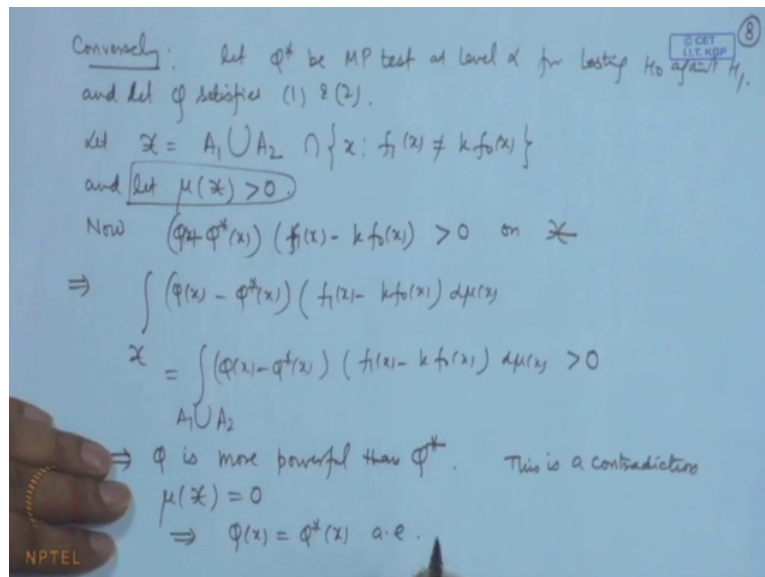 8
© CET
I.I.T. KGP
Conversely: let φ* be MP test at level α for testing H₀ against H₁.
and let φ satisfies (1) & (2).
Let 𝒳 = A₁ ∪ A₂ ∩ {x: f₁(x) ≠ k f₀(x)}
and let μ(𝒳) > 0.
Now (φ(x) - φ*(x)) (f₁(x) - k f₀(x)) > 0 on 𝒳
⇒ ∫ (φ(x) - φ*(x)) (f₁(x) - k f₀(x)) dμ(x)
𝒳 = ∫ (φ(x) - φ*(x)) (f₁(x) - k f₀(x)) dμ(x) > 0
A₁ ∪ A₂
⇒ φ is more powerful than φ*. This is a contradiction
μ(𝒳) = 0
⇒ φ(x) = φ*(x) a.e.
NPTEL